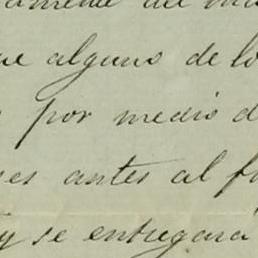 amente del
que alguno de lo
por medio d
es antes al f
y se entregará